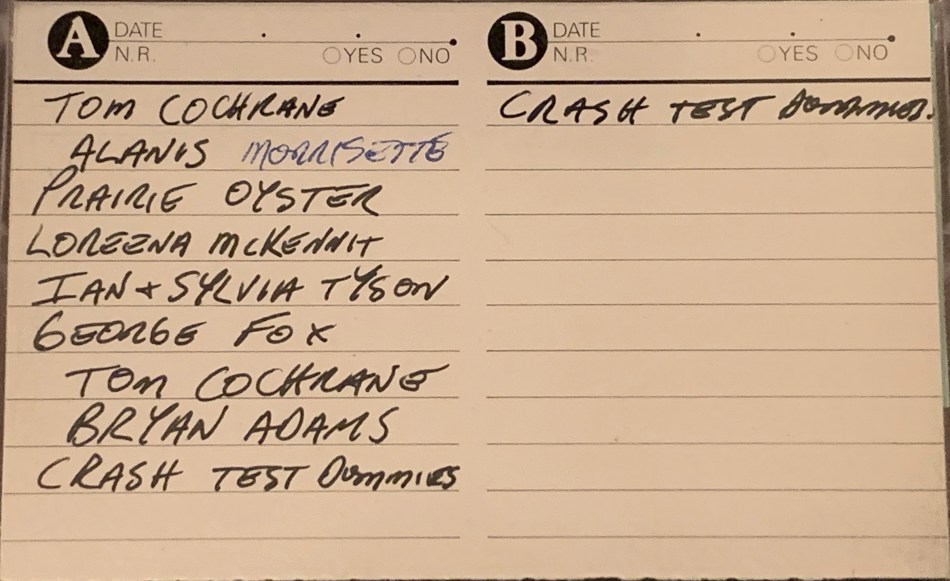 A DATE
N.R. YES NO
TOM COCHRANE
ALANIS MORRISETTE
PRAIRIE OYSTER
LOREENA MCKENNIT
IAN + SYLVIA TYSON
GEORGE FOX
TOM COCHRANE
BRYAN ADAMS
CRASH TEST DUMMIES
B DATE
N.R. YES NO
CRASH TEST DUMMIES.